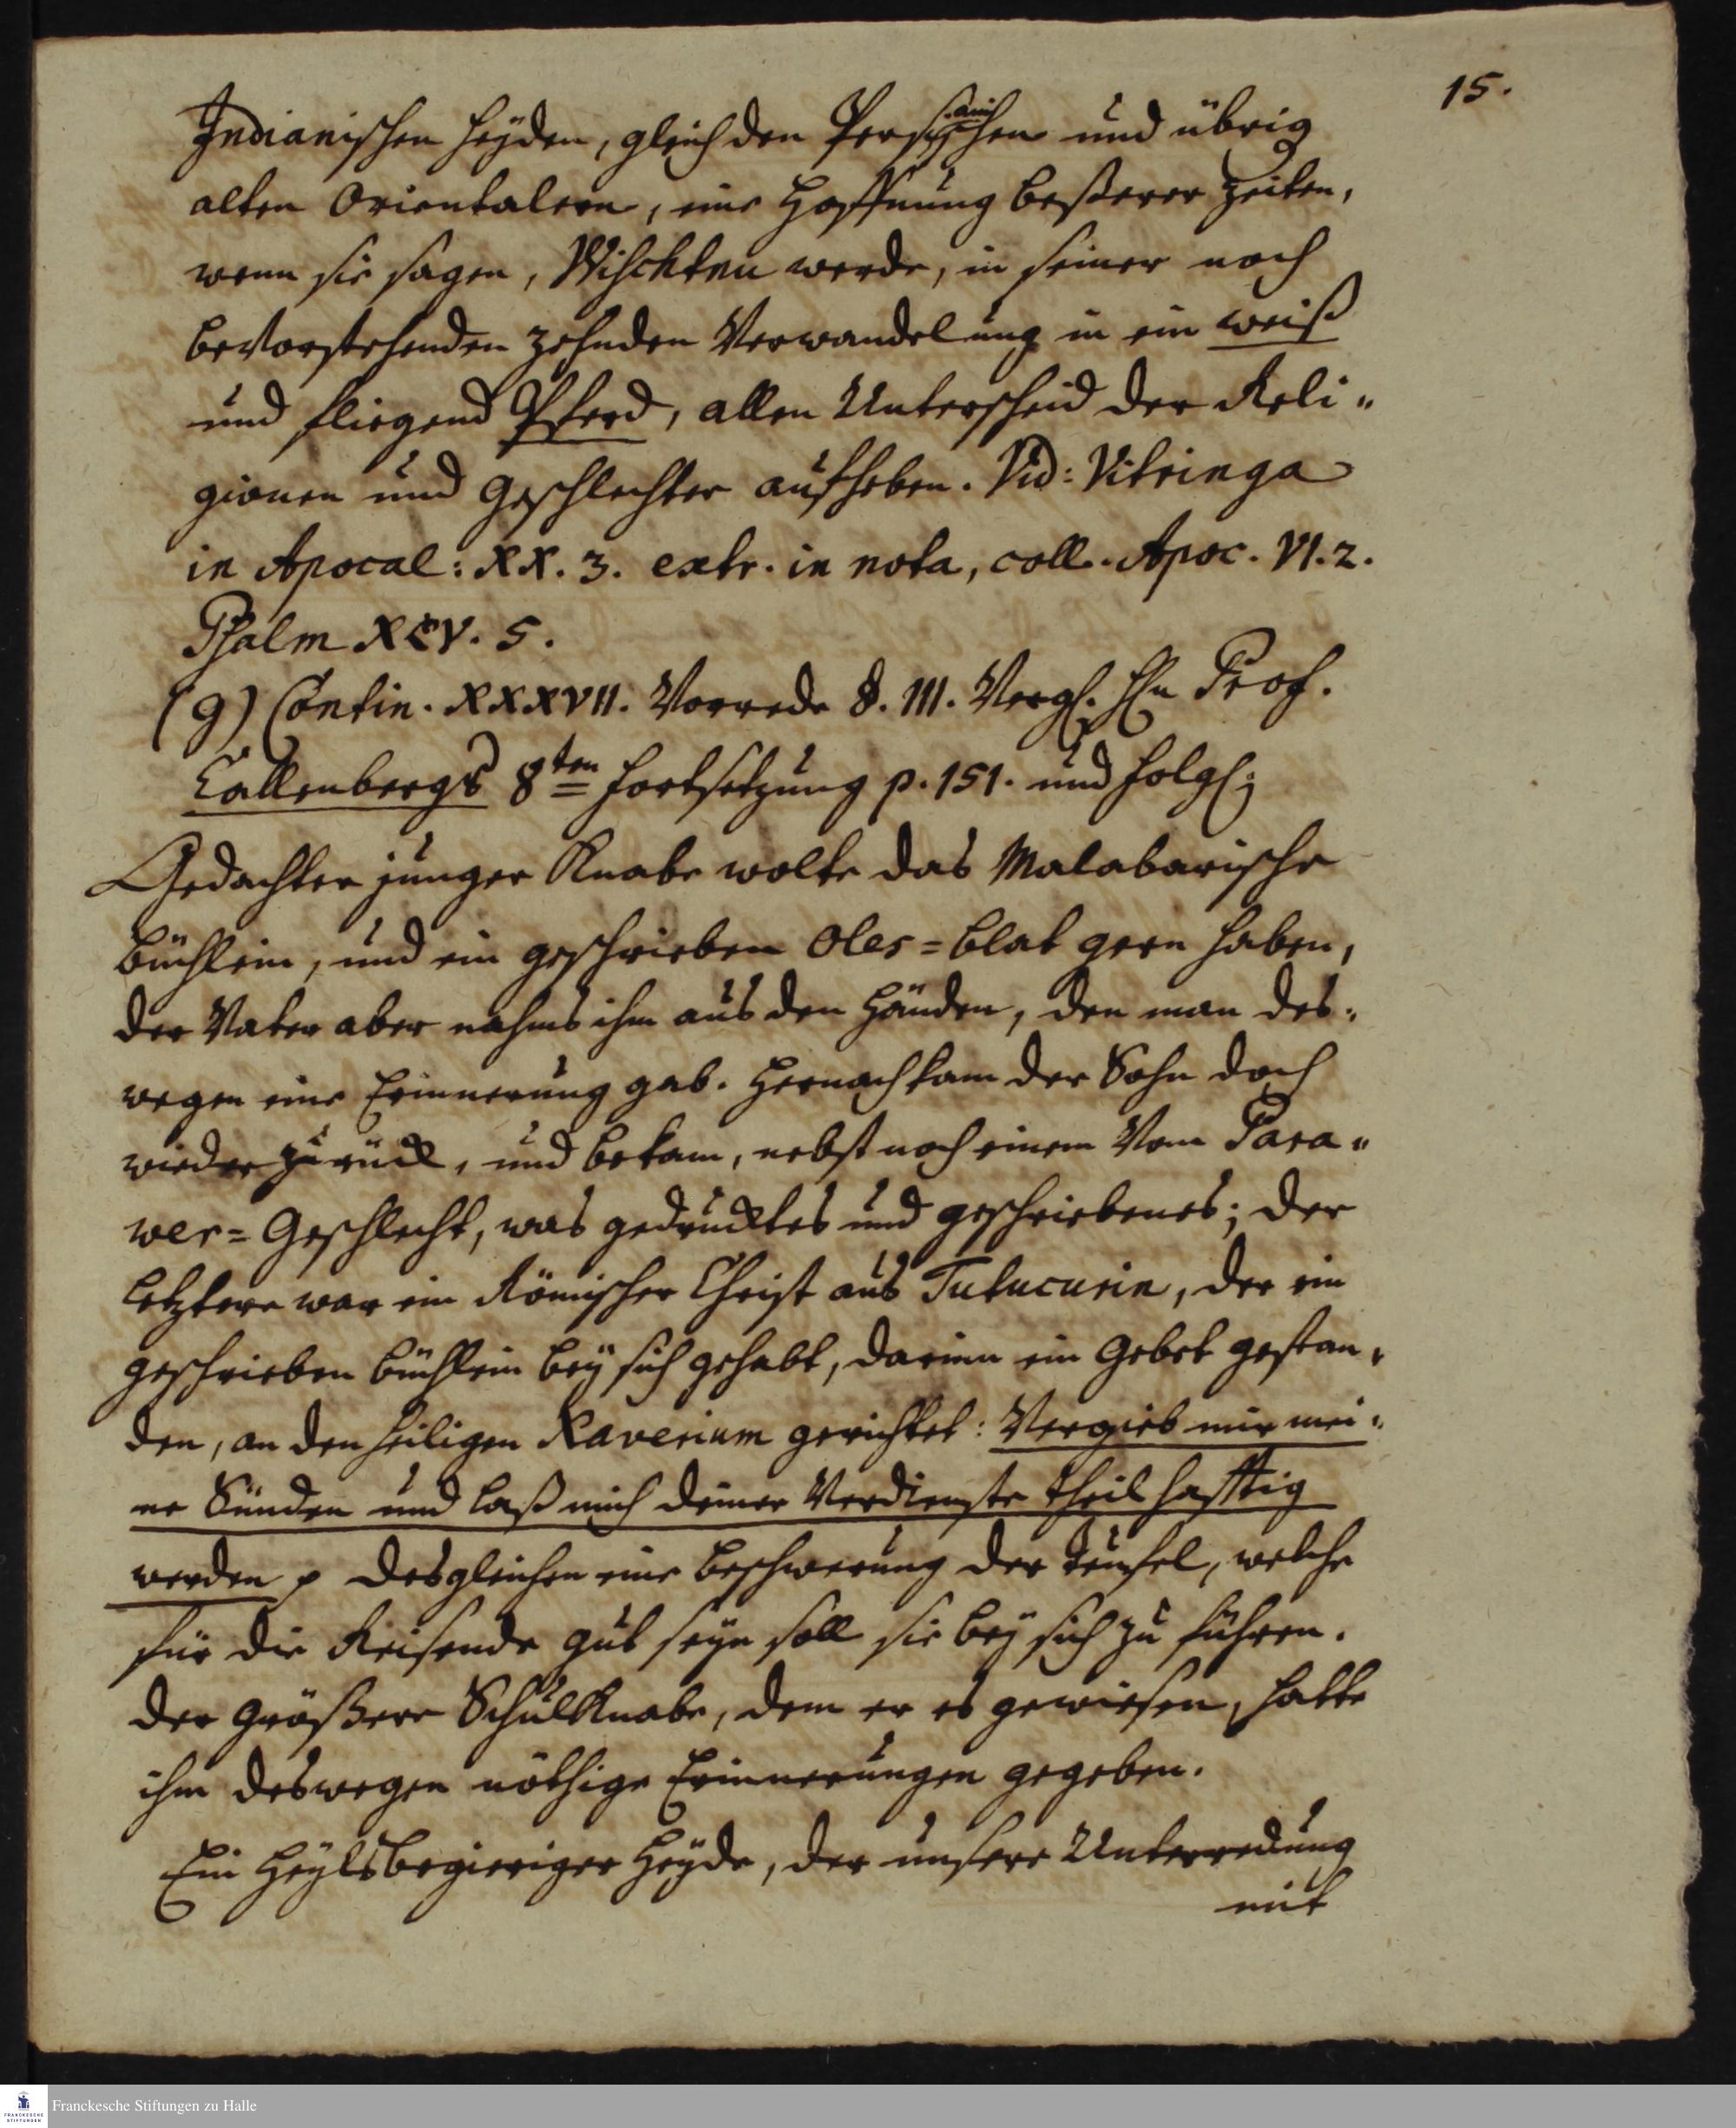 15.
Indianischen Heyden, gleich den Persianischen und übrig
alten Orientalern, eine Hoffnung beßerer Zeiten,
wenn sie sagen, Wischtnu werde, in seiner noch
bevorstehenden zehnden Verwandelung in ein weiß
und fliegend Pferd, allen Unterscheid der Reli„
gionen und Geschlechter aufheben. Vid: Vitringa
in Apocal: XX. 3. extr. in nota, coll. Apoc. VI. 2.
Psalm XLV. 5.
(g) Contin. XXXVII. Vorrede §. III. Vergl. Hn Prof.
Callenbergs 8ten Fortsetzung p. 151. und folg.
Gedachter junger Knabe wolte das Malabarische
büchlein, und ein geschrieben Oles=blat gern haben,
der Vater aber nahms ihm aus den Händen, den man des„
wegen eine Erinnerung gab. Hernach kam der Sohn doch
wieder zurück, und bekam, nebst noch einem vom Para„
wer=Geschlecht, was gedrucktes und geschriebenes; der
letztere war ein Römischer Christ aus Tutucurin, der ein
geschrieben büchlein bey sich gehabt, darinn ein Gebet gestan„
den, an den heiligen Xaverium gerichtet: Vergieb mir mei„
ne Sünden und laß mich deiner Verdienste theilhafftig
werden p desgleichen eine beschwerung der Teufel, welche
für die Reisende gut seyn soll sie bey sich zu führen.
der größere Schulknabe, dem er es gewiesen, hatte
ihm deswegen nöthige Erinnerungen gegeben.
Ein Heylsbegieriger Heyde, der unsere Unterredung
mit
Franckesche Stiftungen zu Halle
FRANCKESCHE
STIFTUNGEN